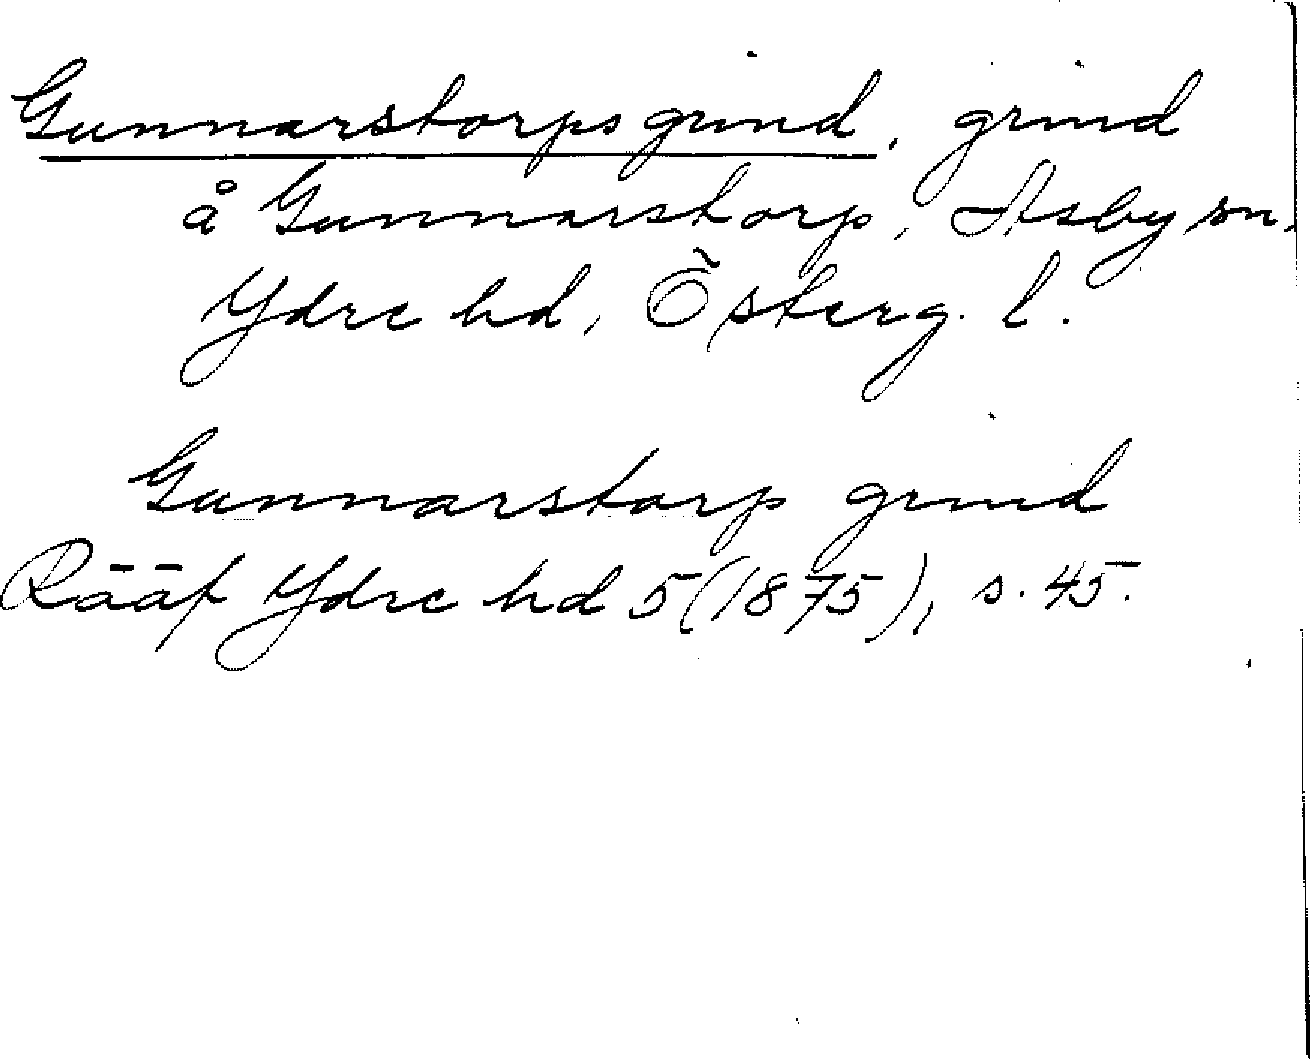 Gunnarstorpsgrind, grind
å Gunnarstorp, Asby sn,
Ydre hd, Österg. l.
Gunnarstorp grind
Rääf Ydre hd 5 (1875), s. 45.